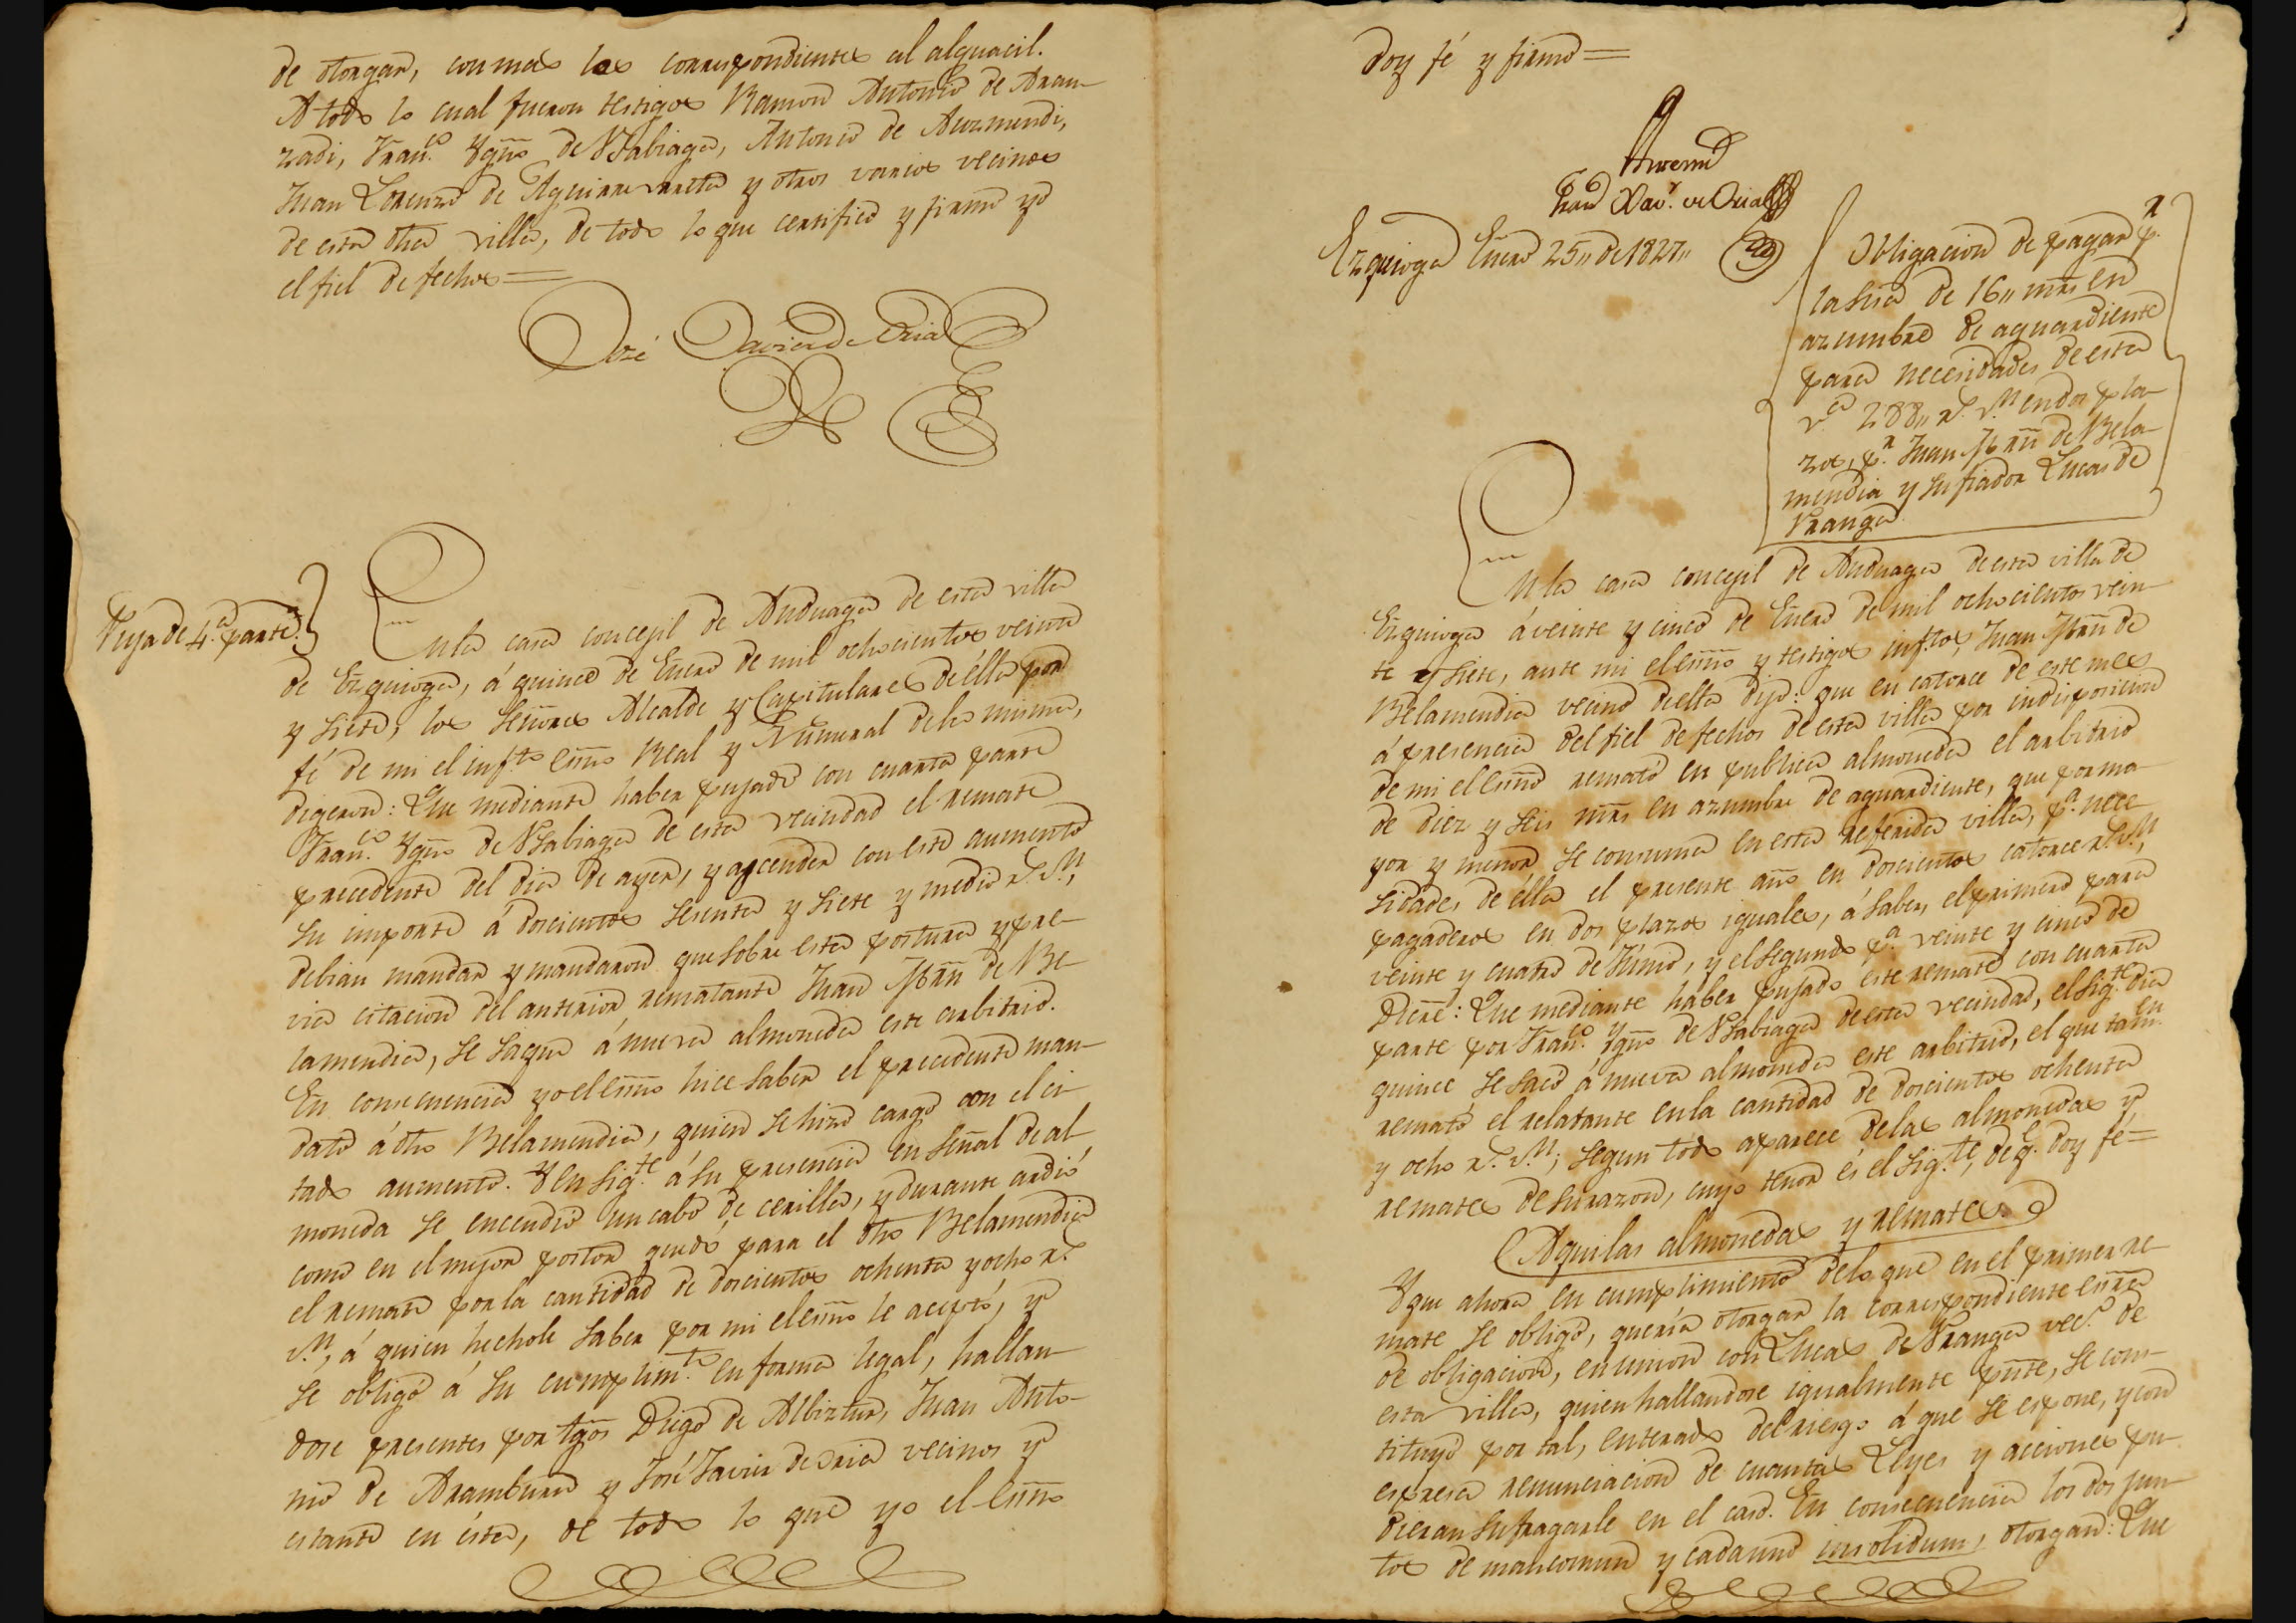 de otorgar, con mas los correspondientes al alguacil.
A todo lo cual fueron testigos Ramon Antonio de Aran-
zadi, Fran.co Ygn.o de Alzbiaga, Antonio de Auzmendi,
Juan Lorenzo de Aguirreurreta y otros varios vecinos
de esta dha villa, de todo lo que certifico y firmo yo
el fiel de fechos=
José Xavier de Oria
Puja de 4.a parte
En la casa concegil de Anduaga de esta villa
de Ezquioga, á quince de Enero de mil ochocientos veinte
y siete, los Señores Alcalde y Capitulares de élla por
fé de mi el inf.to essno Real y Numeral de la misma,
digeron: Que mediante haber pujado con cuarta parte
Fran.co Ygn.o de Alzbiaga de esta vecindad el remate
precedente del dia de ayer, y ascender con este aumento
su importe á doscientos sesenta y siete y medio r.s v.n,
debian mandar y mandaron que sobre esta postura y pre-
via citacion del anterior rematante Juan Bñn de Be-
lamendia, se saque á nueva almoneda este arbitrio.
En consecuencia yo el essno hice saber el precedente man-
dato á dho Belamendia, quien se hizo cargo con el ci-
tado aumento. Y en sig.te á su presencia en señal de al-
moneda se encendió un cabo de cerilla, y durante ardió
como en el mejor postor quedó para el dho Belamendia
el remate por la cantidad de doscientos ochenta y ocho r.s
v.n, á quien hechole saber por mi el essno le aceptó, y
se obligó á su cumplim.to en forma legal, hallan-
dose presentes por tgos Diego de Albiztur, Juan Anto-
nio de Aramburu y José Javier de Oria vecinos y
estante en ésta, de todo lo que yo el essno
doy fé y firmo=
Antemi
José Xav.r de Oria
Ezquioga Enero 25,, de 1827,,
Obligacion de pagar p.r
la sisa de 16,, mrs en
azumbre de aguardiente
para necesidades de esta
v.a 288,, r.s v.n en dos pla-
zos, p.r Juan Bñn de Bela-
mendia y su fiador Lucas de
Uranga
En la casa concegil de Anduaga de esta villa de
Ezquioga á veinte y cinco de Enero de mil ochocientos vein-
te y siete, ante mi el essno y testigos inf.tos, Juan Bñn de
Belamendia vecino de ella dijo: que en catorce de este mes
á presencia del fiel de fechos de esta villa por indisposicion
de mi el essno remató en publica almoneda el arbitrio
de diez y seis mrs en azumbre de aguardiente, que por ma-
yor y menor se consuma en esta referida villa, p.a nece-
sidades de élla el presente año en doscientos catorce r.s v.n,
pagaderos en dos plazos iguales, á saber, el primero para
veinte y cuatro de Junio, y el segundo p.a veinte y cinco de
Dicre: Que mediante haber pujado este remate con cuarta
parte por Fran.co Ygn.o de Alzbiaga de esta vecindad, el sig.te dia
quince se sacó á nueva almoneda este arbitrio, el que tam.en
remató el relatante en la cantidad de doscientos ochenta
y ocho r.s v.n; segun todo aparece de las almonedas y
remates de su razon, cuyo tenor és el sig.te, de q. doy fe=
Aqui las almonedas y remates
Y que ahora en cumplimiento de lo que en el primer re-
mate se obligó, queria otorgar la correspondiente essra
de obligacion, en union con Lucas de Uranga vec.o de
esta villa, quien hallandose igualmente pnte, se cons-
tituyó por tal, enterado del riesgo á que se espone, y con
espresa renunciacion de cuantas Leyes y acciones pu-
dieran sufragarle en el caso. En consecuencia los dos jun-
tos de mancomun y cada uno insolidum, otorgan: Que